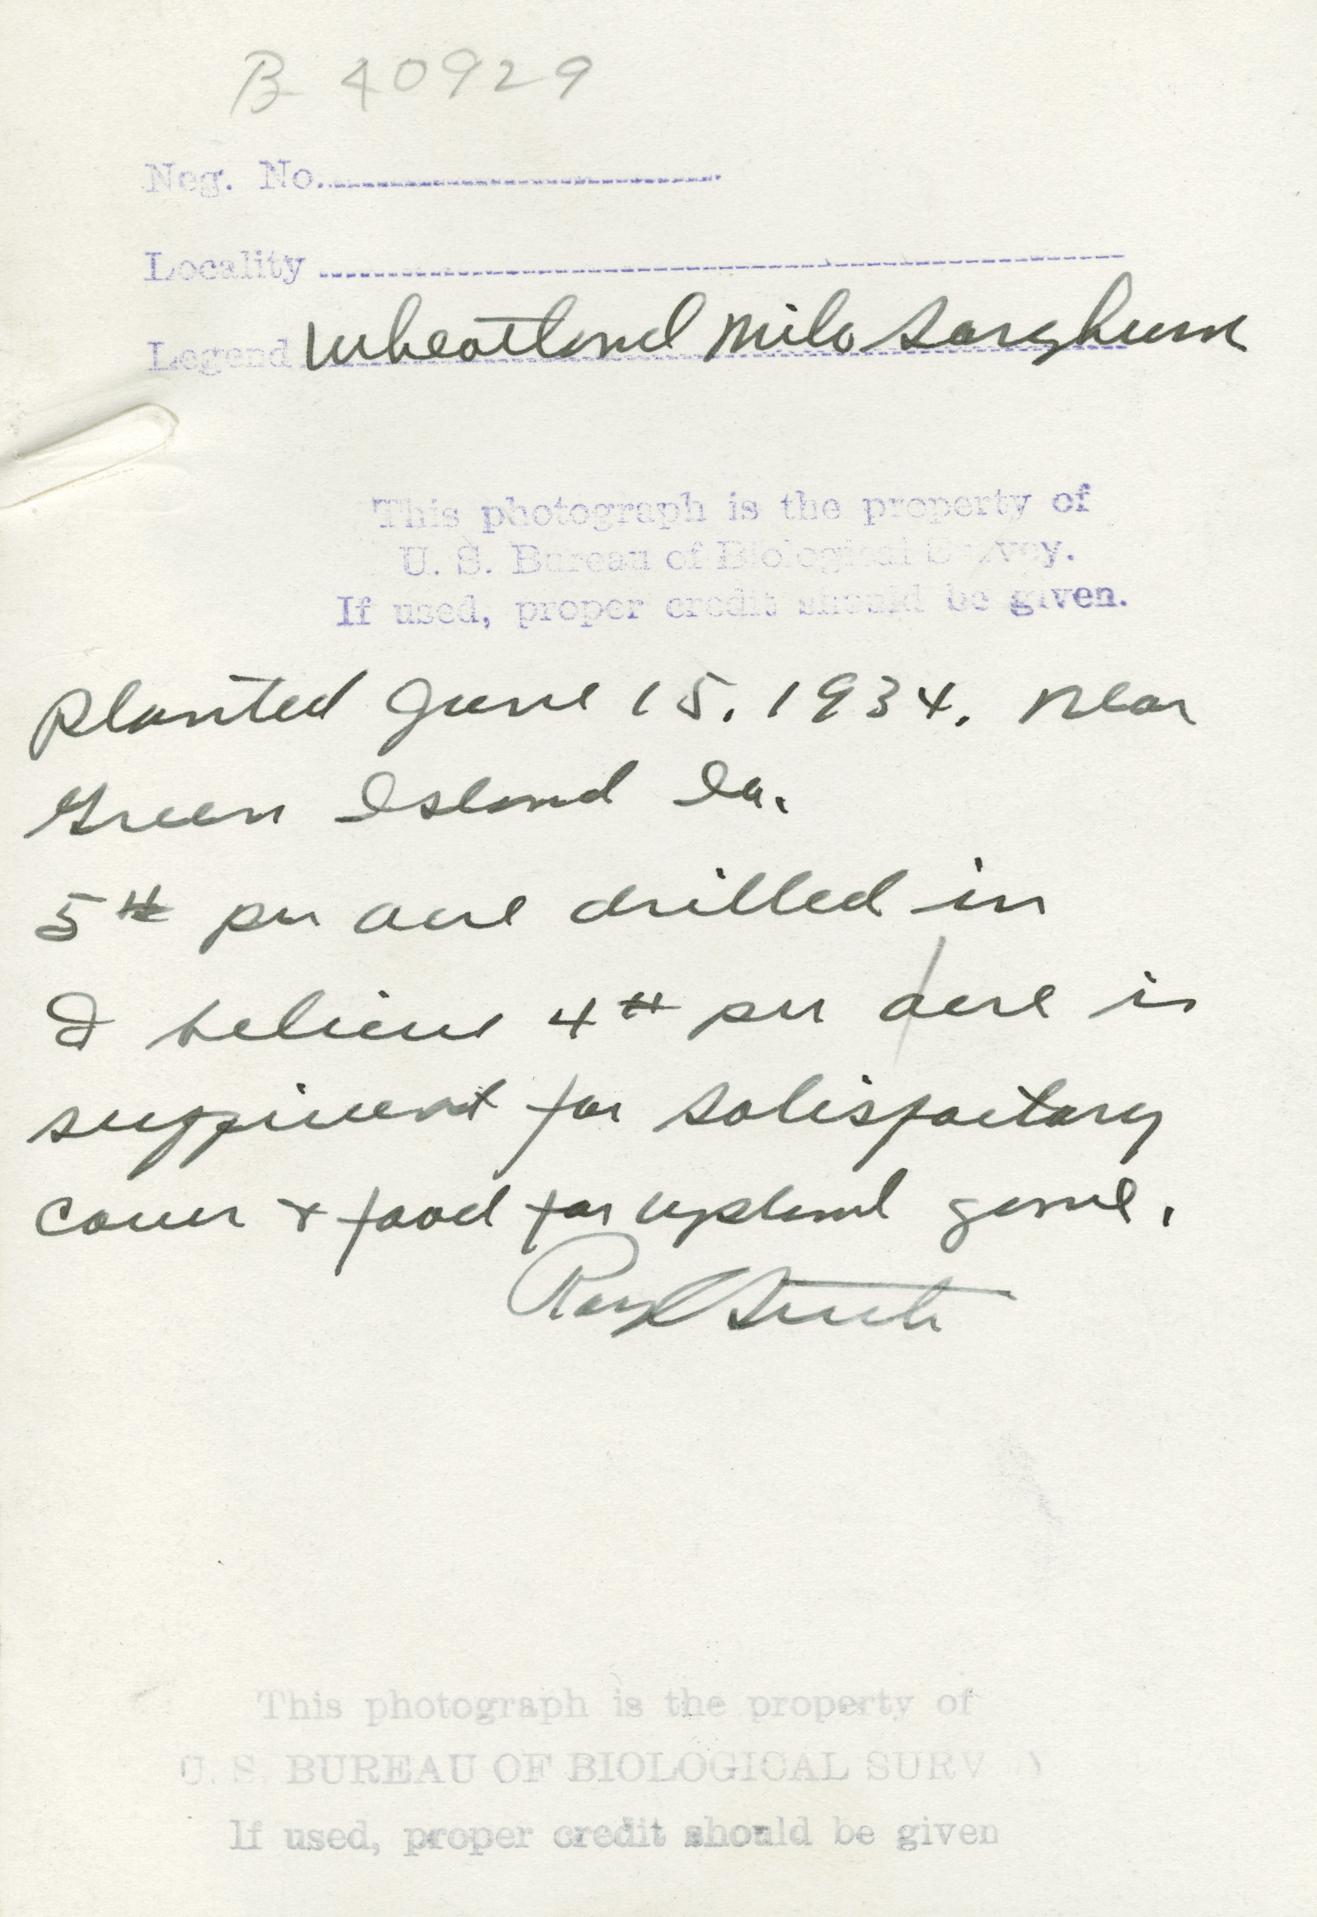 B 40929
Neg. No.
Locality
Legend Wheatland Milo Sorghum
This photograph is the property of
U. S. Bureau of Biological Survey.
If used, proper credit should be given.
Planted June 15, 1934. Near
Green Island Ia.
5# per acre drilled in
I believe 4# per acre is
sufficient for satisfactory
cover & food for upland game.
Ray
This photograph is the property of
U. S. BUREAU OF BIOLOGICAL SURVEY
If used, proper credit should be given